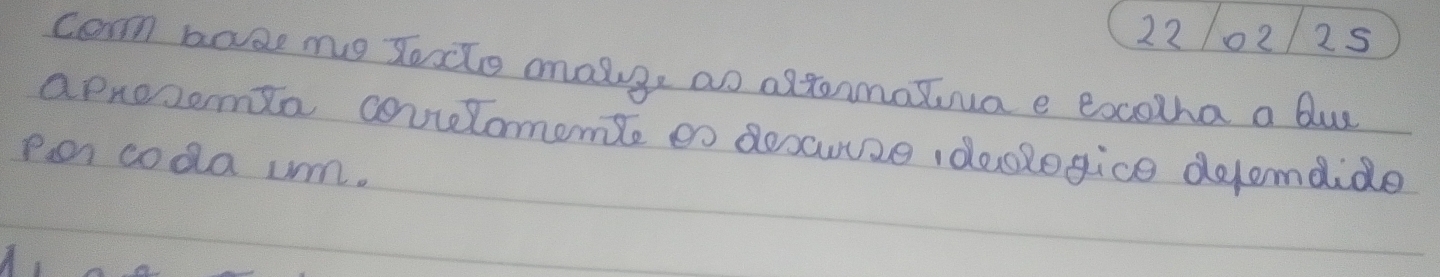 22/02/25
com base no texto analize as alternativa e escolha a que
apresenta corretamente os descurso ideologico defendido
por cada um.